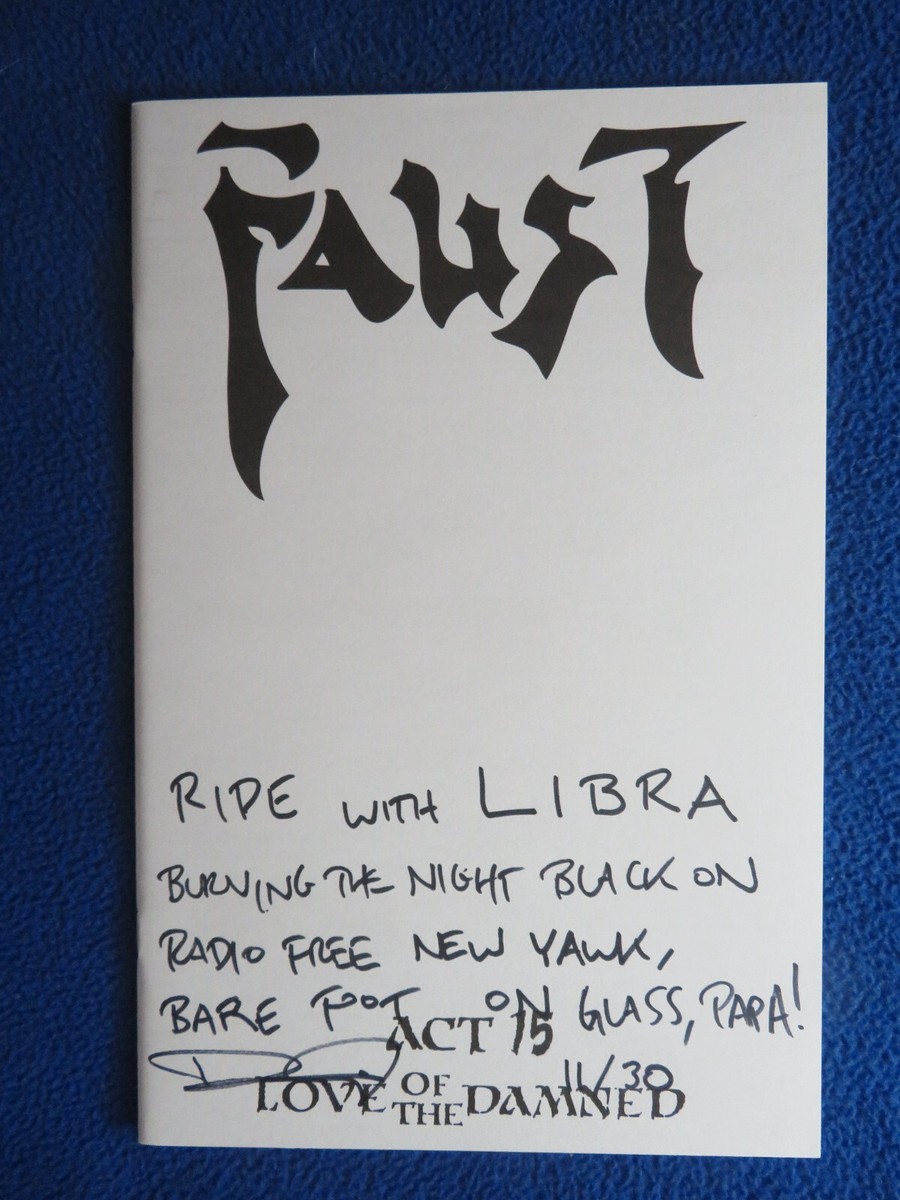 FAUST
RIDE WITH LIBRA
BURNING THE NIGHT BLACK ON
RADIO FREE NEW YAWK,
BARE FOOT ON GLASS, PAPA!
ACT 15
11/30
LOVE OF THE DAMNED